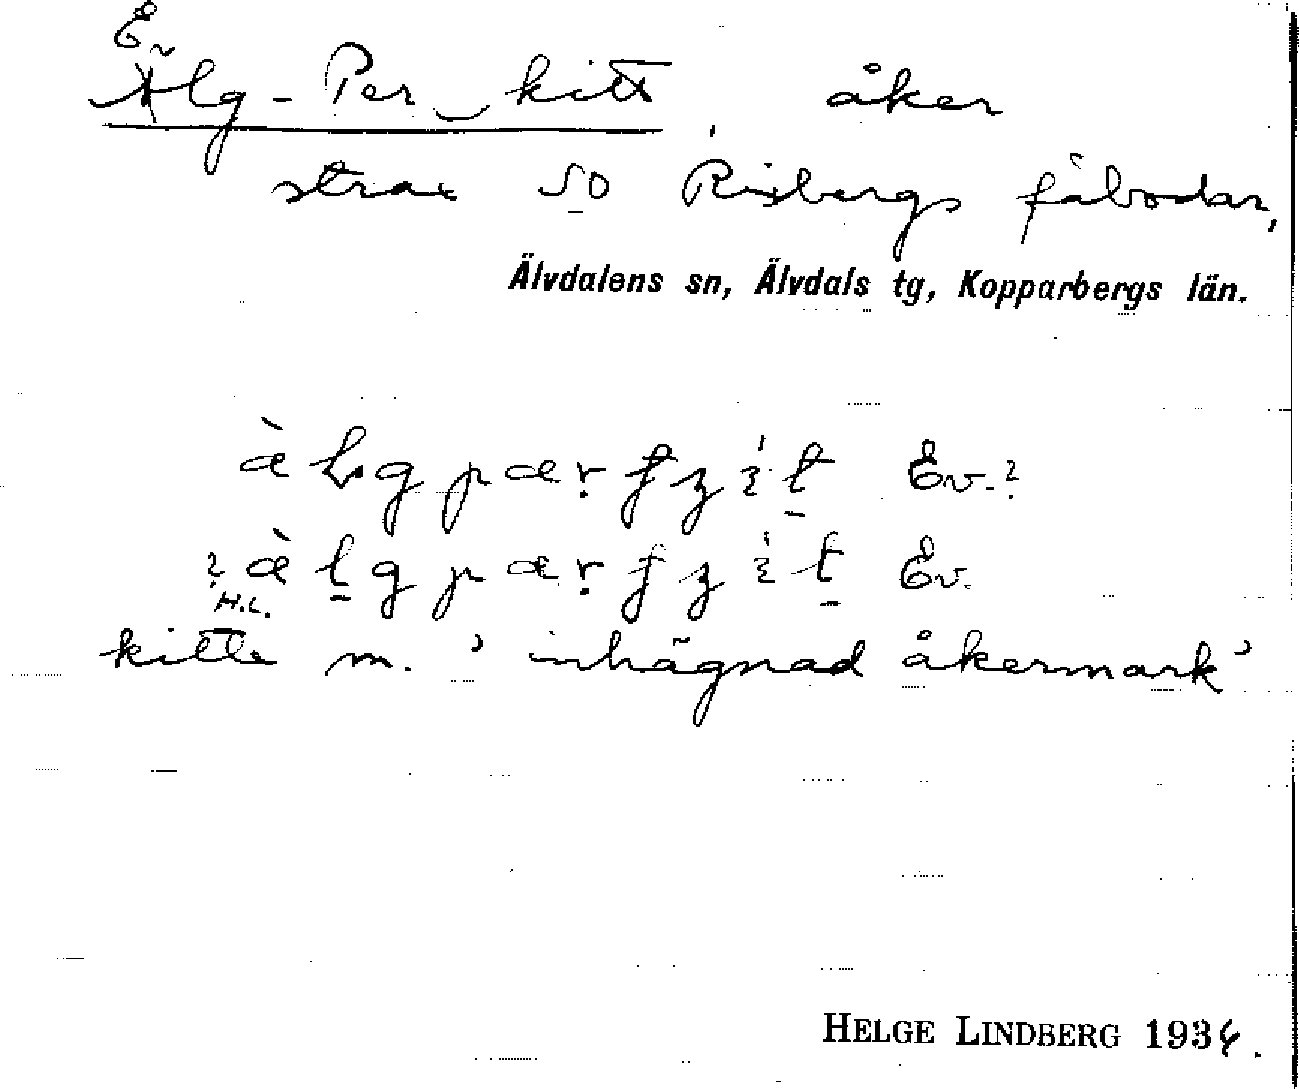 E
Älg-Per_kitt, åker
strax SO Risbergs fäbodar,
Älvdalens sn, Älvdals tg, Kopparbergs län.
æ̀ lg pær f z i t Ev.?
? æ̀ lg pær f z i t Ev.
H.L.
kitte m. 'inhägnad åkermark'
HELGE LINDBERG 1934.